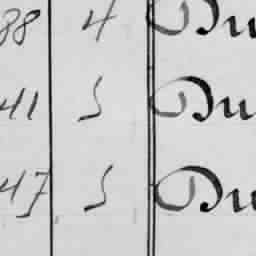 88 4 Du
41 5 Du
47 5 Du